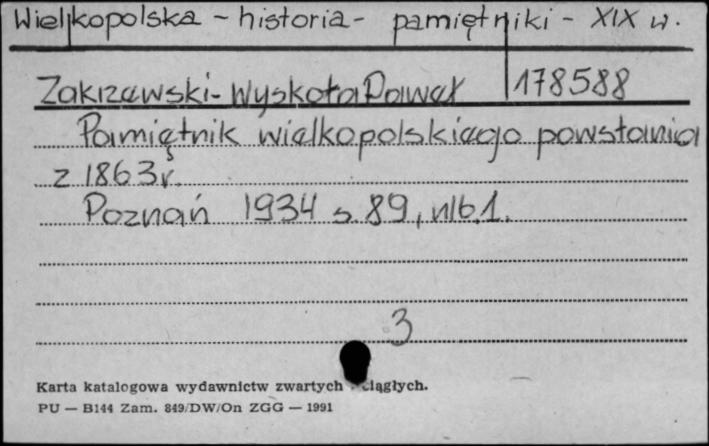 Wielkopolska - historia - pamiętniki - XIX w.
Zakrzewski-Wyskota Paweł 178588
Pamiętnik wielkopolskiego powstania
z 1863r.
Poznań 1934 s. 89, nlb. 1.
3
Karta katalogowa wydawnictw zwartych ciągłych.
PU — B144 Zam. 849/DW/On ZGG — 1991